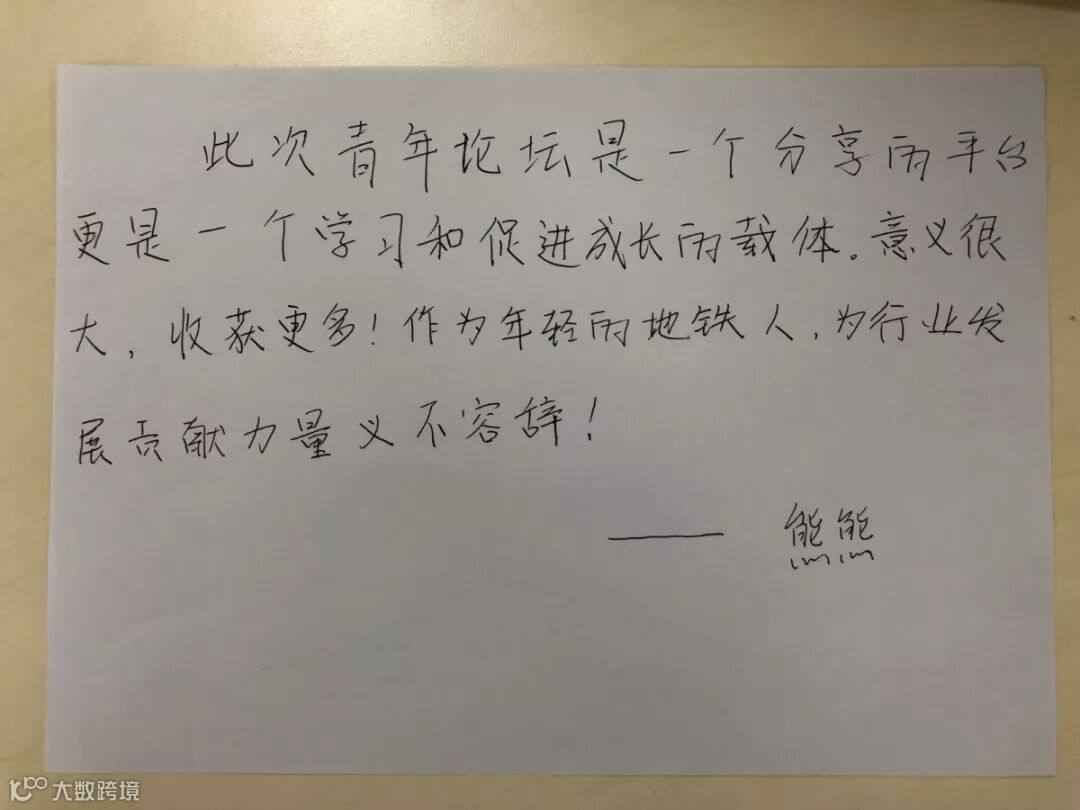 此次青年论坛是一个分享的平台
更是一个学习和促进成长的载体。意义很
大，收获更多！作为年轻的地铁人，为行业发
展贡献力量义不容辞！
—— 熊熊
大数跨境